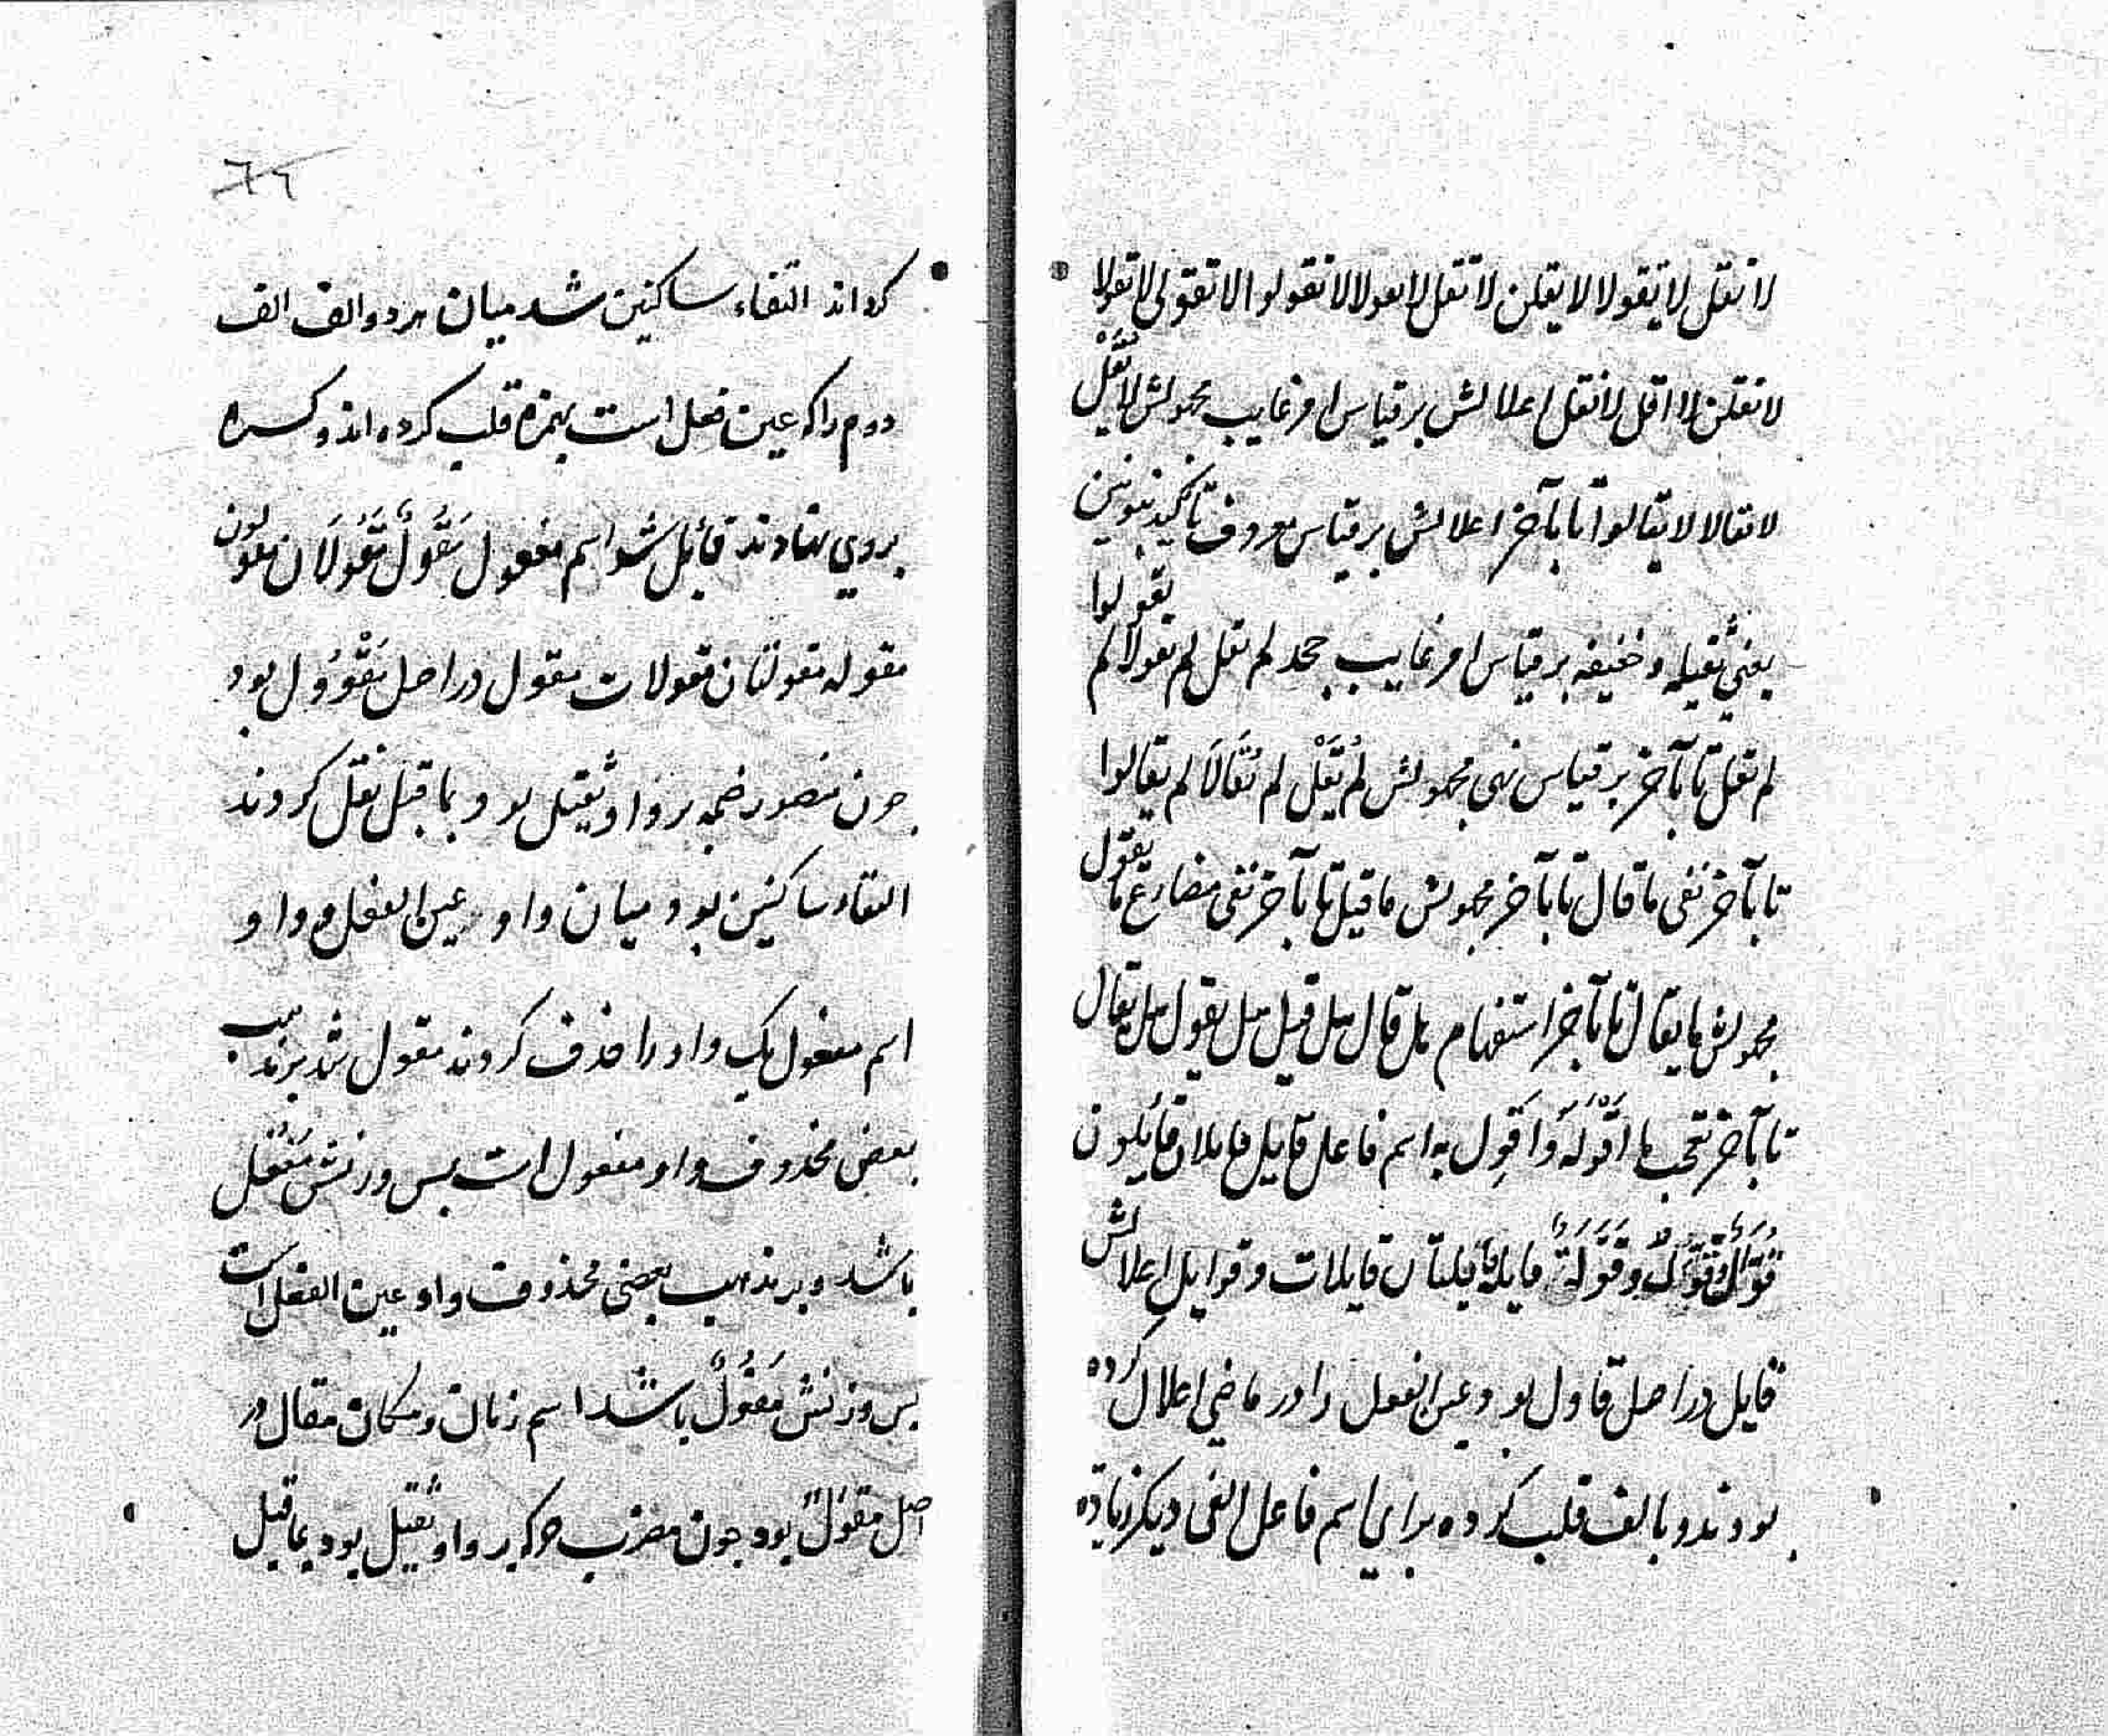 لا تقل لا يقولا لا يقلن لا تقل لا تقولا لا تقولوا لا تقولى لا تقولا
لا تقلن لا اقل لا نقل اعلالش بر قیاس امر غایب مجهولش لا یُقَلْ
لا يقالا لا يقالوا تا بآخر اعلالش بر قیاس معروف تاکید بنونین
یعنی ثقیله و خفیفه بر قیاس امر غایب جحد لم یقل لم یقولا لم یقولوا
لم تقل تا بآخر بر قیاس نهی مجهولش لم یُقَلْ لم یُقَالَا لم یقالوا
تا بآخر نفی ما قال تا بآخر مجهولش ما قیل تا بآخر نفی مضارع ما یقول
مجهولش ما یقال تا بآخر استفهام هل قال هل قیل هل یقول هل یقال
تا بآخر تعجب ما اَقْوَلَهُ وَاَقوِل به اسم فاعل قایل قایلان قایلون
قُوَّالٌ وقُوَّلٌ وقَوَلَةٌ قایله قایلتان قایلات و قوایل اعلالش
قایل در اصل قاول بود عین الفعل را در ماضی اعلال کرده
بودند و بالف قلب کرده برای اسم فاعل الفی دیکر زیاده
کرده‌اند التقاء ساکنین شد میان هر دو الف الف
دوم را که عین فعل است بهمزه قلب کرده‌اند و کسره
بروی نهادند قائل شد اسم مفعول مَقُولٌ مَقُولَانِ مقولون
مقوله مقولتان مقولات مقول در اصل مَقْوُول بود
چون منصور ضمه بر واو ثقیل بود بما قبل نقل کردند
التقاء ساکنین بود میان واو عین الفعل و واو
اسم مفعول یک واو را حذف کردند مقول شد بر مذهب
بعضی محذوف واو مفعول است پس وزنش مَفُعْل
باشد و بر مذهب بعضی محذوف واو عین الفعل است
پس وزنش مَفُولٌ باشد اسم زمان و مکان مقال در
اصل مقوَلٌ بود چون مضرب حرکه بر واو ثقیل بود بما قبل